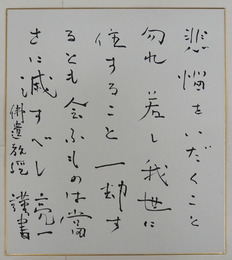 悲悩をいだくこと
勿れ若し我世に
住すること一劫す
るとも会ふものは当
さに滅すべし亮一
佛遺教經 謹書